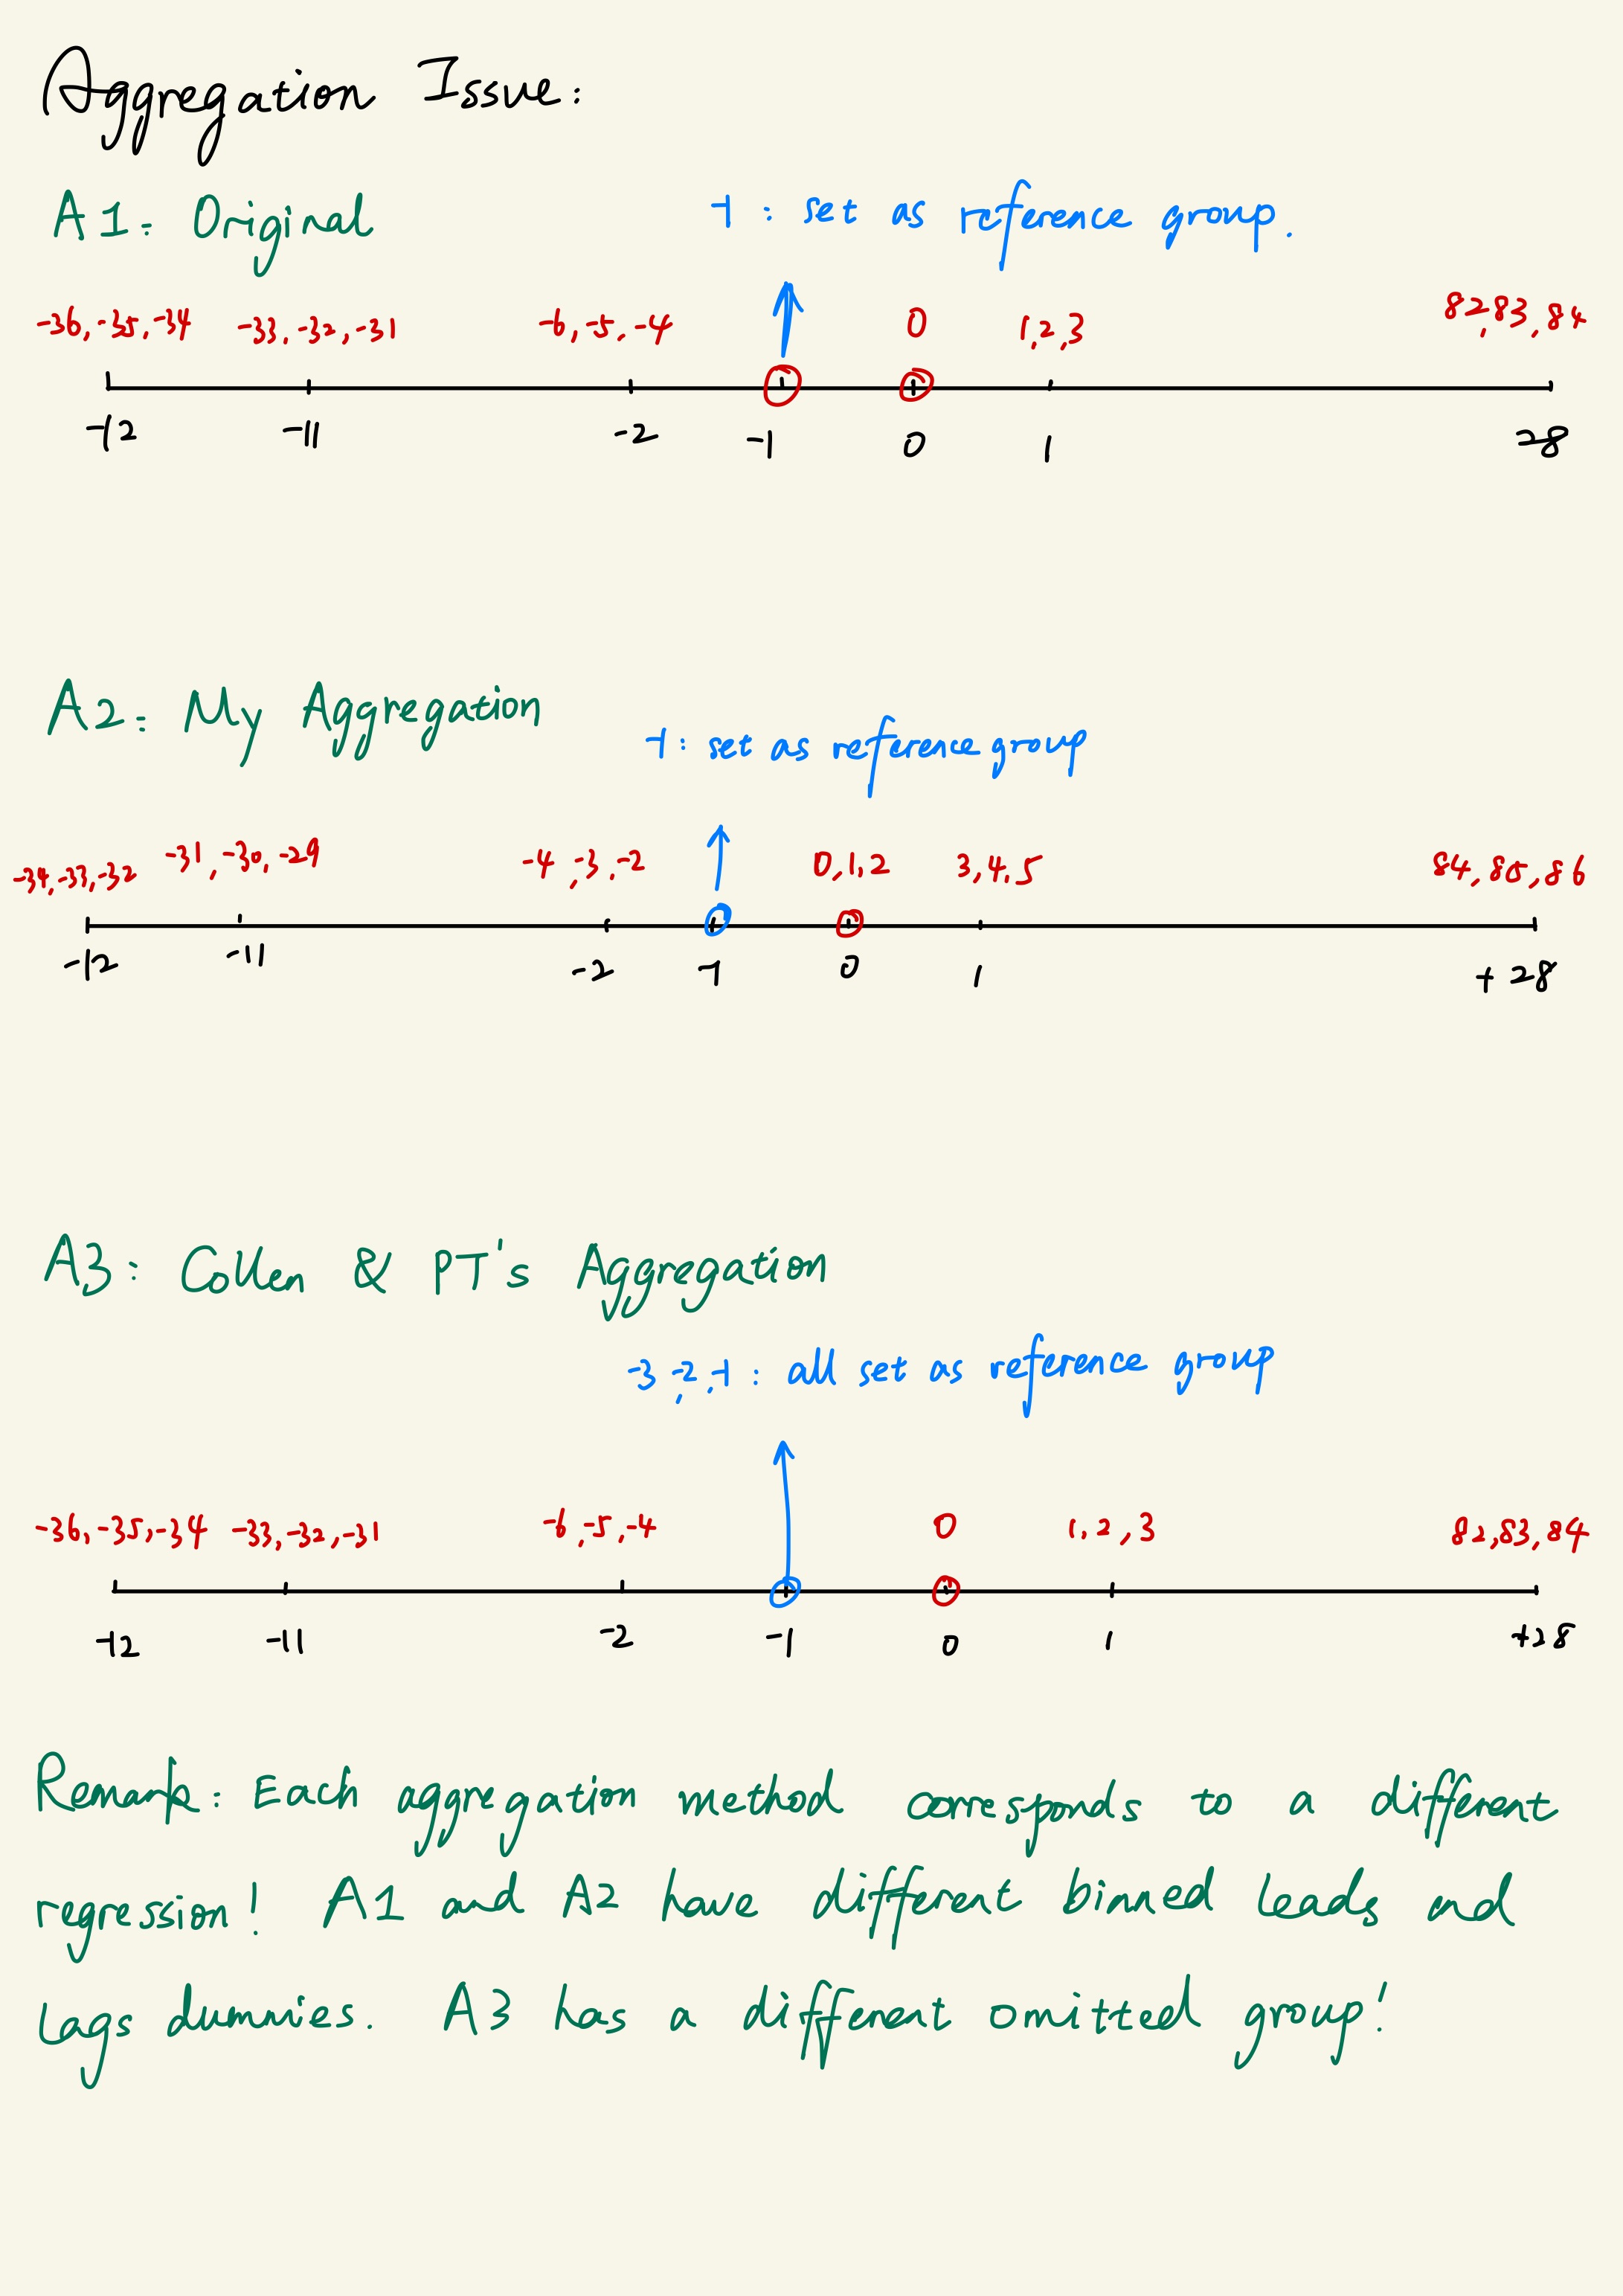 Aggregation Issue:
A1: Original
-1: set as reference group.
-36, -35, -34 -33, -32, -31 -6, -5, -4 0 1, 2, 3 82, 83, 84
-12 -11 -2 -1 0 1 28
A2: My Aggregation
-1: set as reference group
-34, -33, -32 -31, -30, -29 -4, -3, -2 0, 1, 2 3, 4, 5 84, 85, 86
-12 -11 -2 -1 0 1 +28
A3: Collen & PT's Aggregation
-3, -2, -1: all set as reference group
-36, -35, -34 -33, -32, -31 -6, -5, -4 0 1, 2, 3 82, 83, 84
-12 -11 -2 -1 0 1 +28
Remark: Each aggregation method corresponds to a different
regression! A1 and A2 have different binned leads and
lags dummies. A3 has a different omitted group!